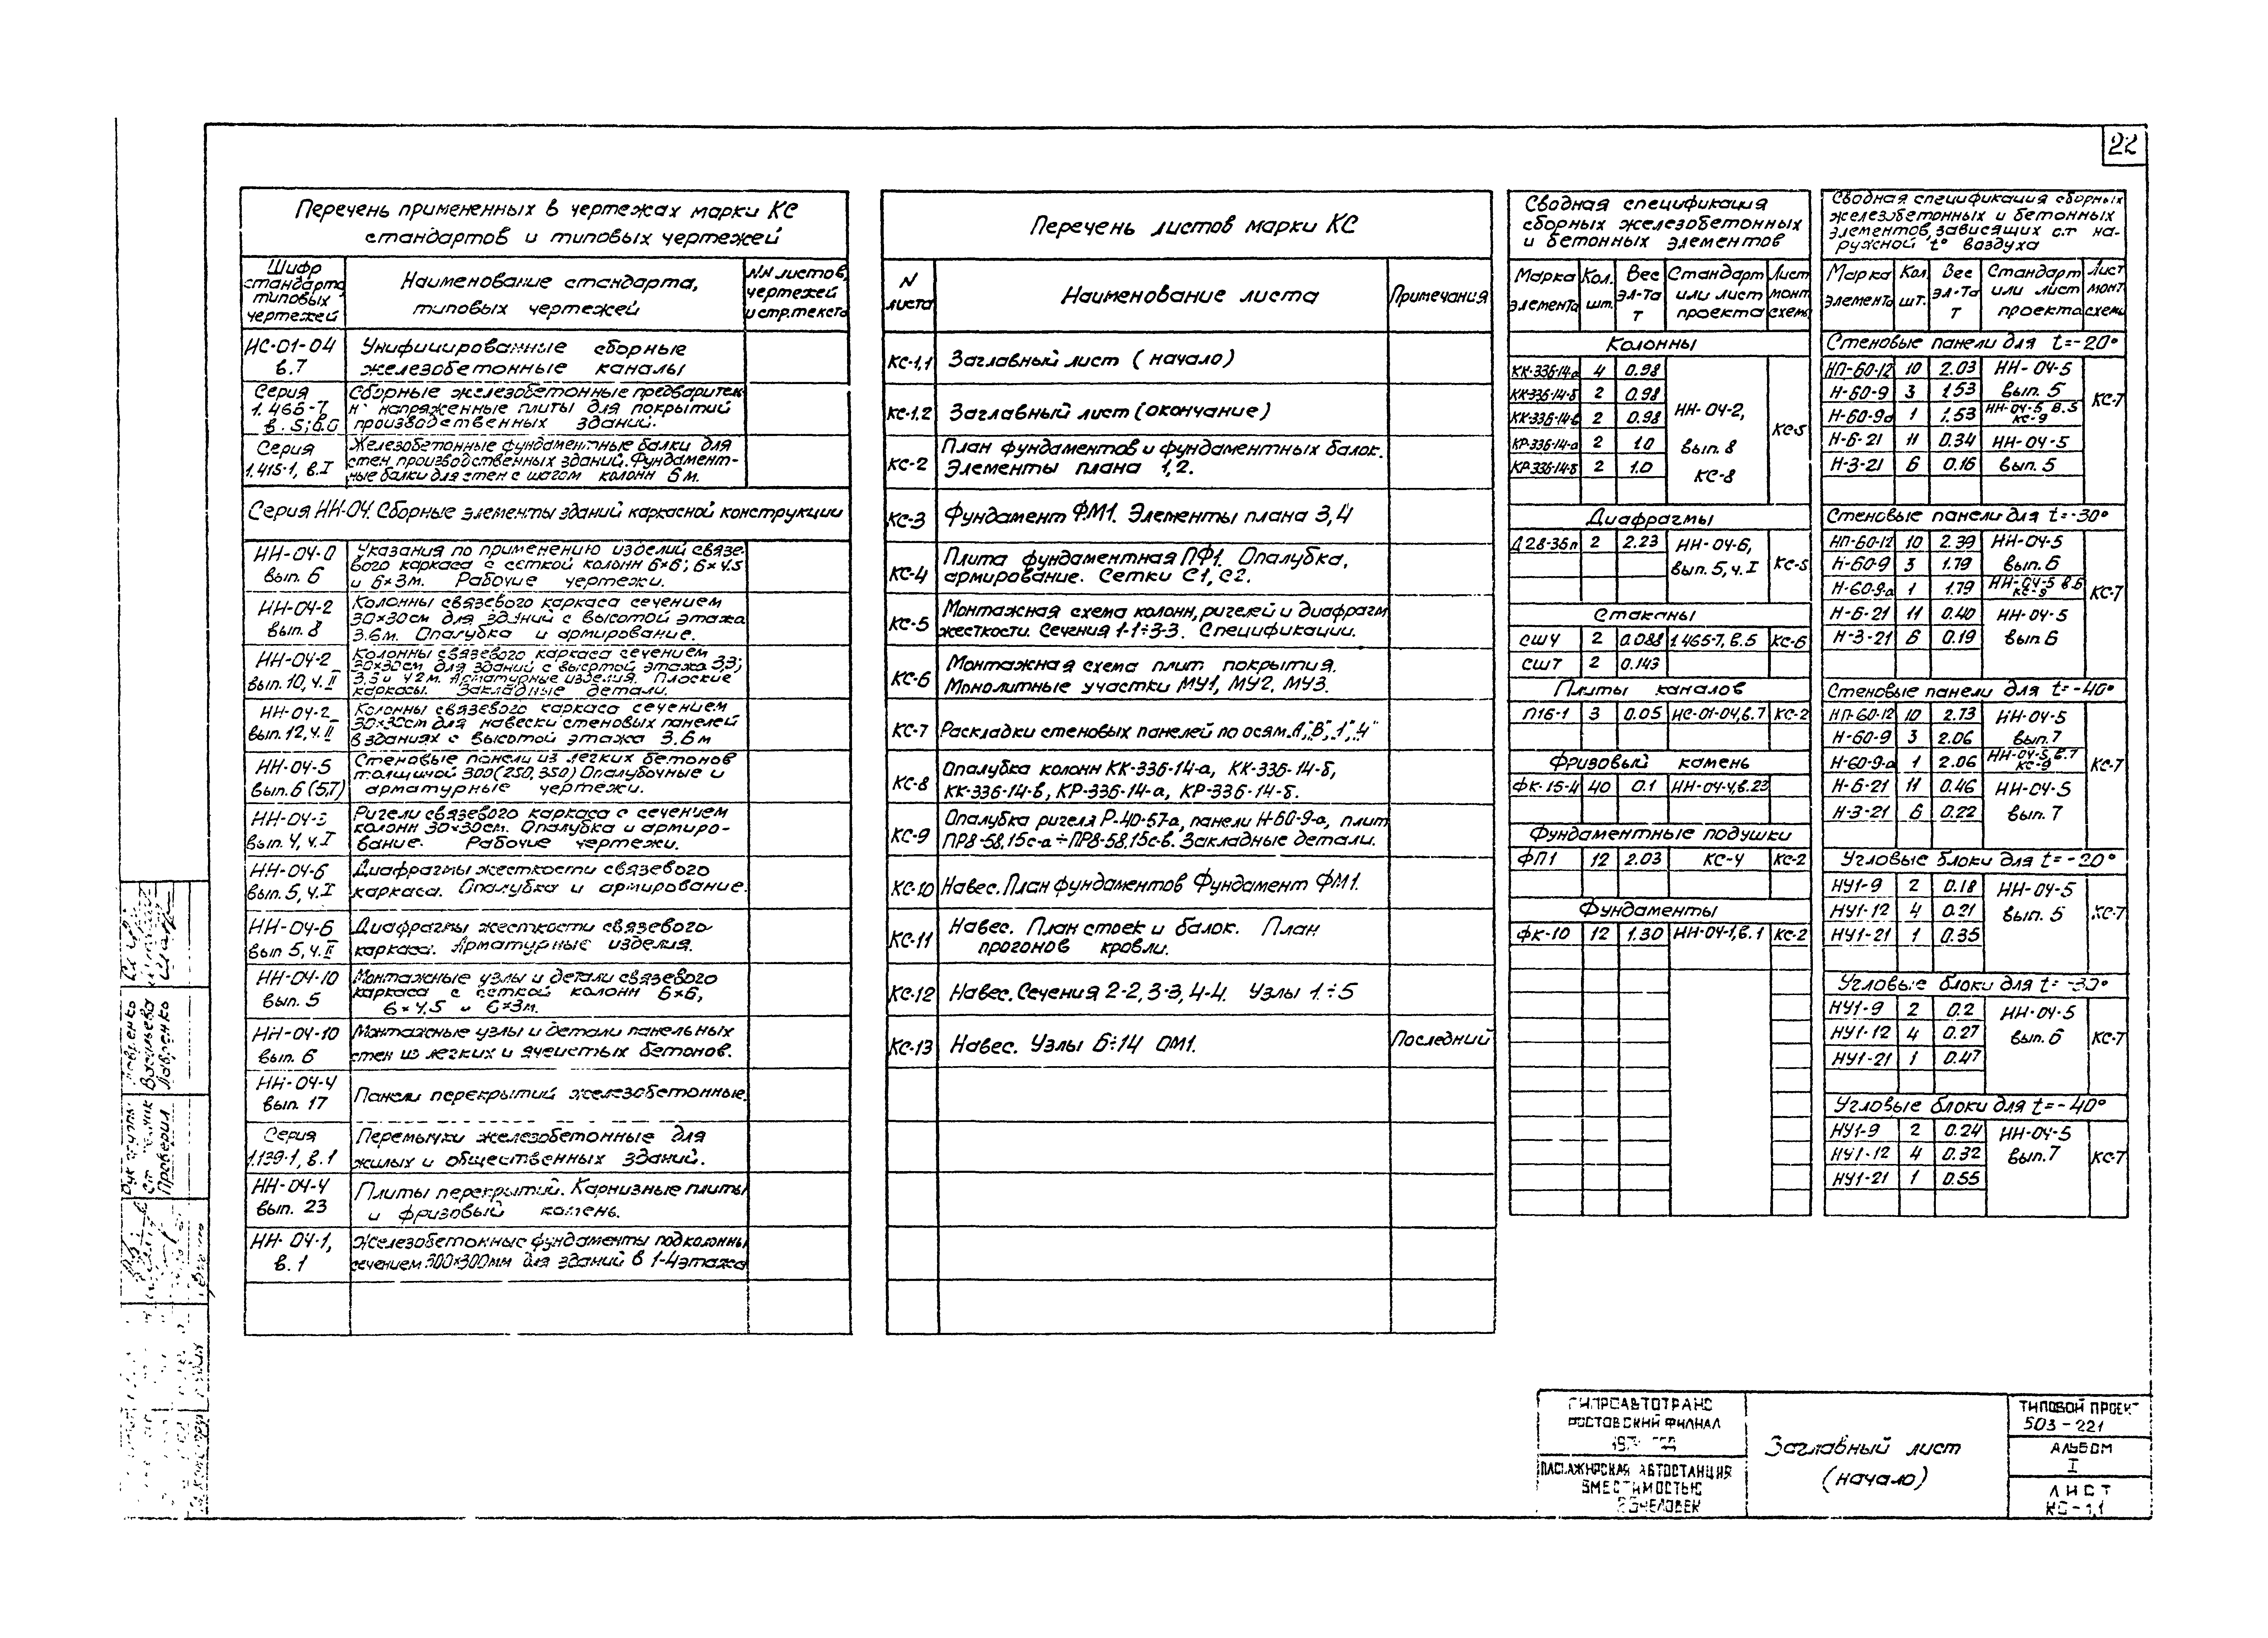 22
Перечень примененных в чертежах марки КС
стандартов и типовых чертежей
Шифр стандарта, типовых чертежей
Наименование стандарта, типовых чертежей
NN листов, чертежей и стр. текста
ИС-01-04 в.7
Унифицированные сборные
железобетонные каналы
Серия 1.465-7 в.5;
Сборные железобетонные предваритель
н напряженные плиты для покрытий
производственных зданий.
Серия 1.415-1, в.I
Железобетонные фундаментные балки для
стен производственных зданий. Фундамент-
ные балки для стен с шагом колонн 6 м.
Серия ИИ-04. Сборные элементы зданий каркасной конструкции
ИИ-04-0 вып. 6
Указания по применению изделий связе-
вого каркаса с сеткой колонн 6×6; 6×4.5
и 6×3м. Рабочие чертежи.
ИИ-04-2 вып. 8
Колонны связевого каркаса сечением
30×30см для зданий с высотой этажа
3.6м. Опалубка и армирование.
ИИ-04-2 вып. 10, ч.II
Колонны связевого каркаса сечением
30×30см для зданий с высотой этажа 3,3;
3,6 и 4.2м. Арматурные изделия. Плоские
каркасы. Закладные детали.
ИИ-04-2 вып. 12, ч.II
Колонны связевого каркаса сечением
30×30см для навески стеновых панелей
в зданиях с высотой этажа 3.6м
ИИ-04-5 вып. 6 (5,7)
Стеновые панели из легких бетонов
толщиной 300(250, 350) Опалубочные и
арматурные чертежи.
ИИ-04-3 вып. 4, ч.I
Ригели связевого каркаса с сечением
колонн 30×30см. Опалубка и армиро-
вание. Рабочие чертежи.
ИИ-04-6 вып. 5, ч.I
Диафрагмы жесткости связевого
каркаса. Опалубка и армирование.
ИИ-04-6 вып 5, ч.II
Диафрагмы жесткости связевого
каркаса. Арматурные изделия.
ИИ-04-10 вып. 5
Монтажные узлы и детали связевого
каркаса с сеткой колонн 6×6,
6×4,5 и 6×3м.
ИИ-04-10 вып. 6
Монтажные узлы и детали панельных
стен из легких и ячеистых бетонов.
ИИ-04-4 вып. 17
Панели перекрытий железобетонные.
Серия 1.139-1, в.1
Перемычки железобетонные для
жилых и общественных зданий.
ИИ-04-4 вып. 23
Плиты перекрытий. Карнизные плиты
и фризовый камень.
ИИ-04-1, в.1
Железобетонные фундаменты под колонны
сечением 300×300мм для зданий в 1-4 этажа
Перечень листов марки КС
N листа
Наименование листа
Примечания
КС-1,1 Заглавный лист (начало)
КС-1.2 Заглавный лист (окончание)
КС-2 План фундаментов и фундаментных балок.
Элементы плана 1,2.
КС-3 Фундамент ФМ1. Элементы плана 3,4
КС-4 Плита фундаментная ПФ1. Опалубка,
армирование. Сетки С1, С2.
КС-5 Монтажная схема колонн, ригелей и диафрагм
жесткости. Сечения 1-1÷3-3. Спецификации.
КС-6 Монтажная схема плит покрытия.
Монолитные участки МУ1, МУ2, МУ3.
КС-7 Раскладки стеновых панелей по осям „А", „В", „1", „4"
КС-8 Опалубка колонн КК-336-14-а, КК-336-14-б,
КК-336-14-в, КР-336-14-а, КР-336-14-б.
КС-9 Опалубка ригеля Р-40-57-а, панели Н-60-9-а, плит
ПР8-58,15с-а÷ПР8-58,15с-в. Закладные детали.
КС-10 Навес. План фундаментов Фундамент ФМ1.
КС-11 Навес. План стоек и балок. План
прогонов кровли.
КС-12 Навес. Сечения 2-2, 3-3, 4-4. Узлы 1÷5
КС-13 Навес. Узлы 6÷14 ОМ1. Последний
Сводная спецификация
сборных железобетонных
и бетонных элементов
Марка элемента
Кол. шт.
Вес эл-та т
Стандарт или лист проекта
Лист монт схемы
Колонны
КК-336-14-а 4 0.98
КК-336-14-б 2 0.98
КК-336-14-в 2 0.98
КР-336-14-а 2 1.0
КР-336-14-б 2 1.0
ИИ-04-2,
вып. 8
КС-8
КС-5
Диафрагмы
Д28-36п 2 2.23 ИИ-04-6,
вып. 5, ч.I КС-5
Стаканы
СШ4 2 0.088 1.465-7, в.5 КС-6
СШ7 2 0.143
Плиты каналов
П16-1 3 0.05 ИС-01-04, в.7 КС-2
Фризовый камень
ФК-15-4 40 0.1 ИИ-04-4, в.23
Фундаментные подушки
ФП1 12 2.03 КС-4 КС-2
Фундаменты
ФК-10 12 1.30 ИИ-04-1, в.1 КС-2
Сводная спецификация сборных
железобетонных и бетонных
элементов, зависящих от на-
ружной t° воздуха
Марка элемента
Кол. шт.
Вес эл-та т
Стандарт или лист проекта
Лист монт схемы
Стеновые панели для t=-20°
НП-60-12 10 2.03 ИИ-04-5
Н-60-9 3 1.53 вып. 5
Н-60-9а 1 1.53 ИИ-04-5, в.5 КС-9
Н-6-21 11 0.34 ИИ-04-5
Н-3-21 6 0.16 вып. 5
КС-7
Стеновые панели для t=-30°
НП-60-12 10 2.39 ИИ-04-5
Н-60-9 3 1.79 вып. 6
Н-60-9-а 1 1.79 ИИ-04-5 в.6 КС-9
Н-6-21 11 0.40 ИИ-04-5
Н-3-21 6 0.19 вып 6
КС-7
Стеновые панели для t=-40°
НП-60-12 10 2.73 ИИ-04-5
Н-60-9 3 2.06 вып. 7
Н-60-9-а 1 2.06 ИИ-04-5, в.7 КС-9
Н-6-21 11 0.46 ИИ-04-5
Н-3-21 6 0.22 вып. 7
КС-7
Угловые блоки для t=-20°
НУ1-9 2 0.18 ИИ-04-5
НУ1-12 4 0.21 вып. 5 КС-7
НУ1-21 1 0.35
Угловые блоки для t=-30°
НУ1-9 2 0.2 ИИ-04-5
НУ1-12 4 0.27 вып. 6 КС-7
НУ1-21 1 0.47
Угловые блоки для t=-40°
НУ1-9 2 0.24 ИИ-04-5
НУ1-12 4 0.32 вып. 7 КС-7
НУ1-21 1 0.55
ГИПРОАВТОТРАНС
РОСТОВСКИЙ ФИЛИАЛ
ПАССАЖИРСКАЯ АВТОСТАНЦИЯ
ВМЕСТИМОСТЬЮ
ЧЕЛОВЕК
Заглавный лист
(начало)
ТИПОВОЙ ПРОЕКТ
503-221
АЛЬБОМ
I
ЛИСТ
КС-1,1
Васильева
Лавренко
Проверил